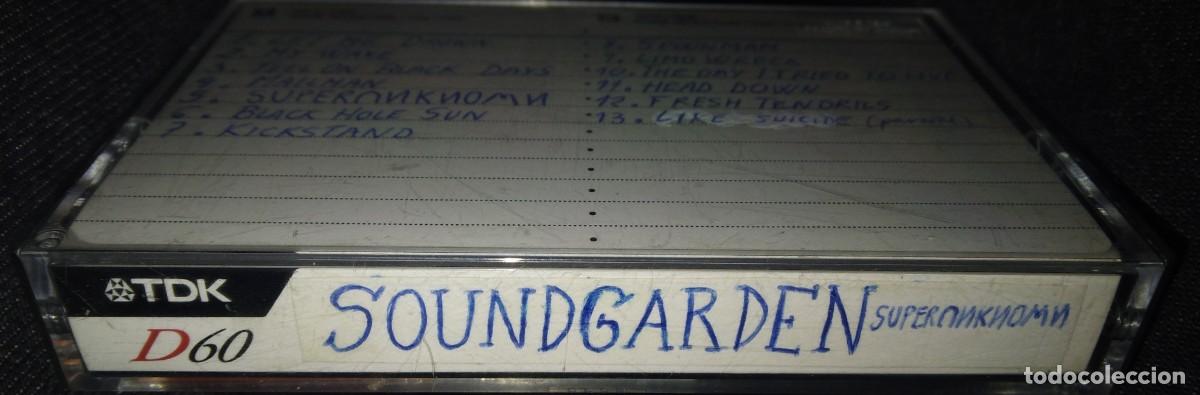 1. LET ME DROWN
2. MY WAVE
3. FELL ON BLACK DAYS
4. MAILMAN
5. SUPERПИKИOMИ
6. BLACK HOLE SUN
7. KICKSTAND
8. SPOONMAN
9. LIMO WRECK
10. THE DAY I TRIED TO LIVE
11. HEAD DOWN
12. FRESH TENDRILS
13. LIKE SUICIDE
TDK
D60
SOUNDGARDEN SUPERПИKИOMИ
todocoleccion